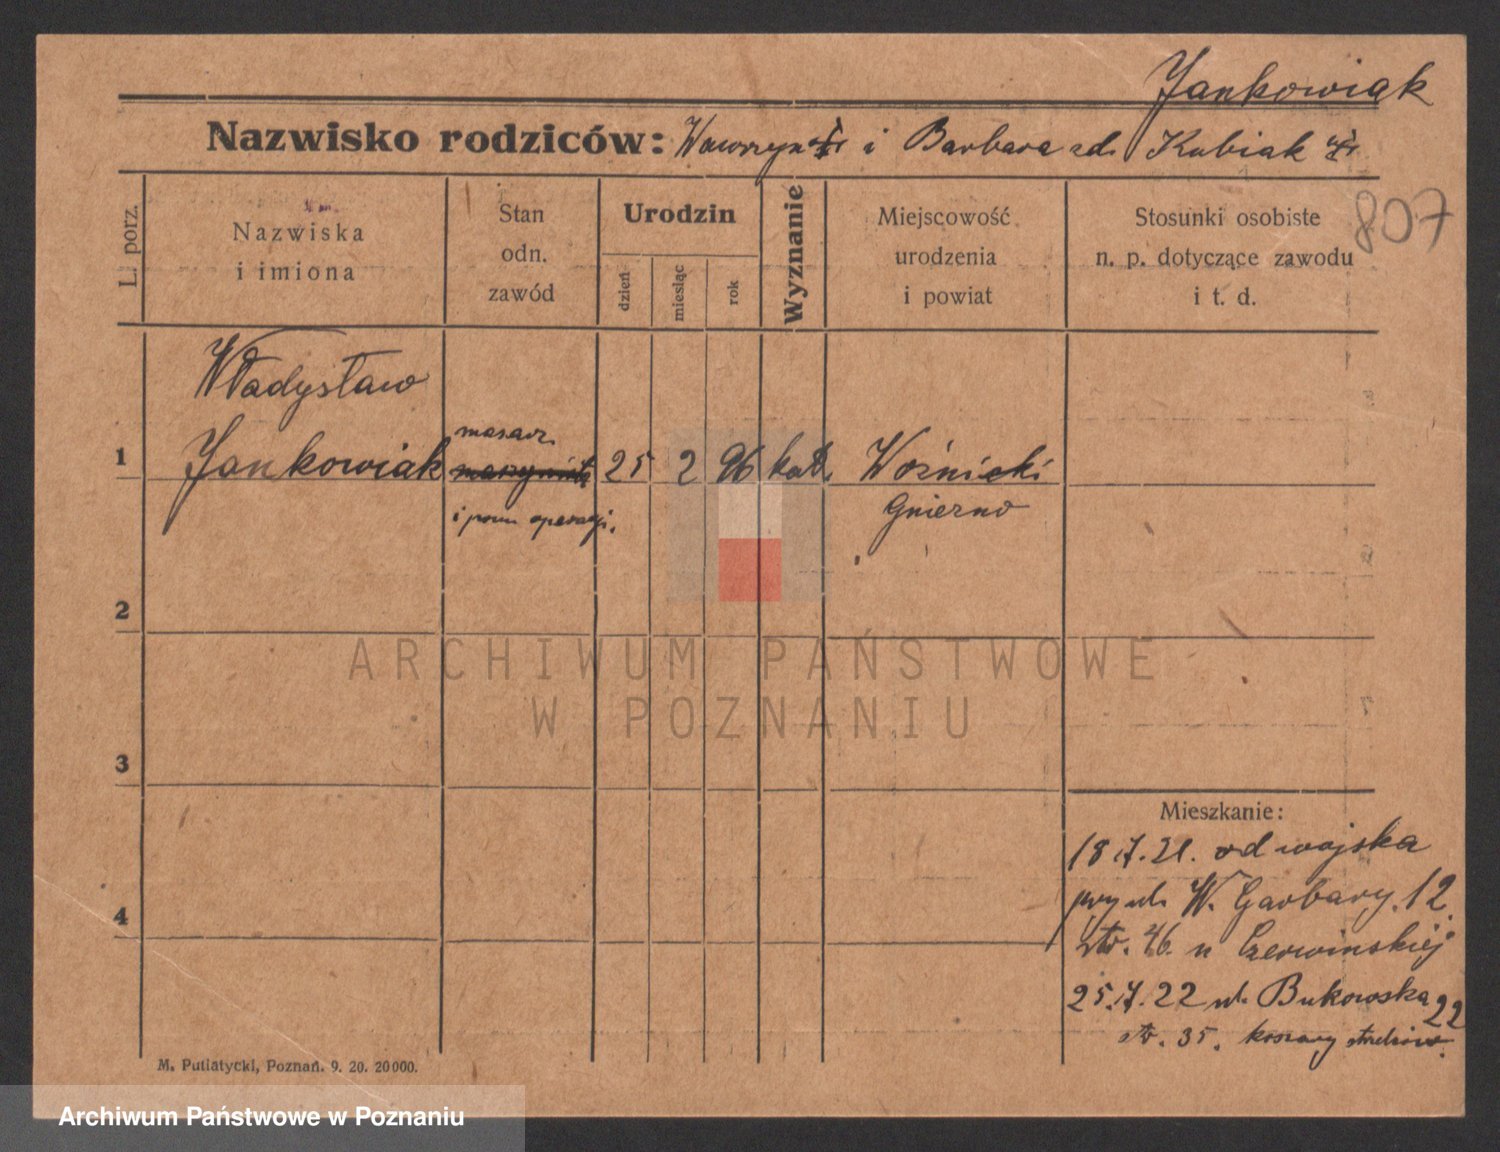 Jankowiak
Nazwisko rodziców: Wawrzyn i Barbara zd. Kubiak
807
L. porz.
Nazwiska
i imiona
Stan
odn.
zawód
Urodzin
dzień
miesiąc
rok
Wyznanie
Miejscowość
urodzenia
i powiat
Stosunki osobiste
n. p. dotyczące zawodu
i t. d.
Władysław
masarz
1 Jankowiak 25 2 96 kat. Woźnicki
i pom. Gniezno
2
ARCHIWUM PAŃSTWOWE
W POZNANIU
3
Mieszkanie:
18.7.21. od wojska
przy ul. W. Garbary 12
4
str. 46. u Czerwinskiej
25.7.22 ul. Bukowska 22
str. 35. koszary
M. Putiatycki, Poznań. 9. 20. 20000.
Archiwum Państwowe w Poznaniu